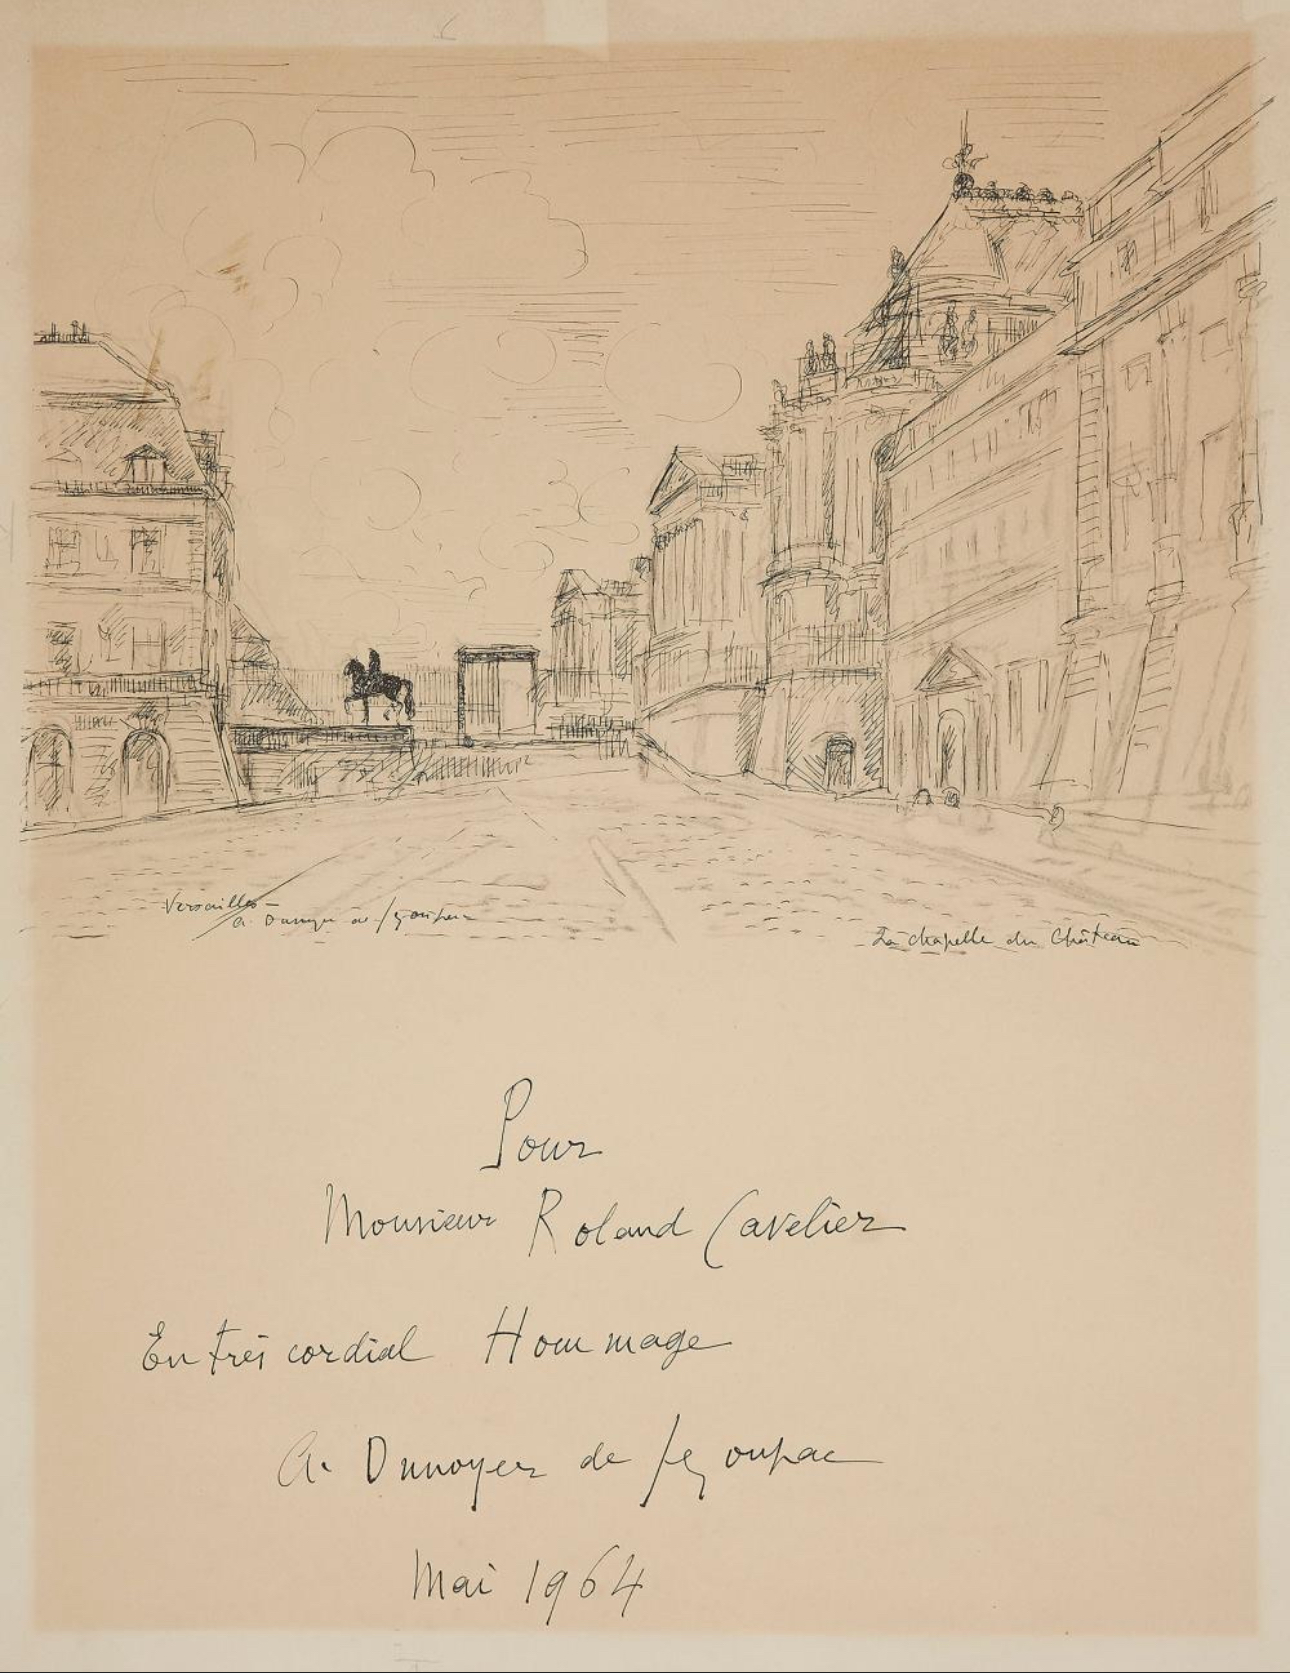 Versailles
A. Dunoyer de Segonzac
La chapelle du Château
Pour
Monsieur Roland Cavelier
En très cordial Hommage
A. Dunoyer de Segonzac
Mai 1964